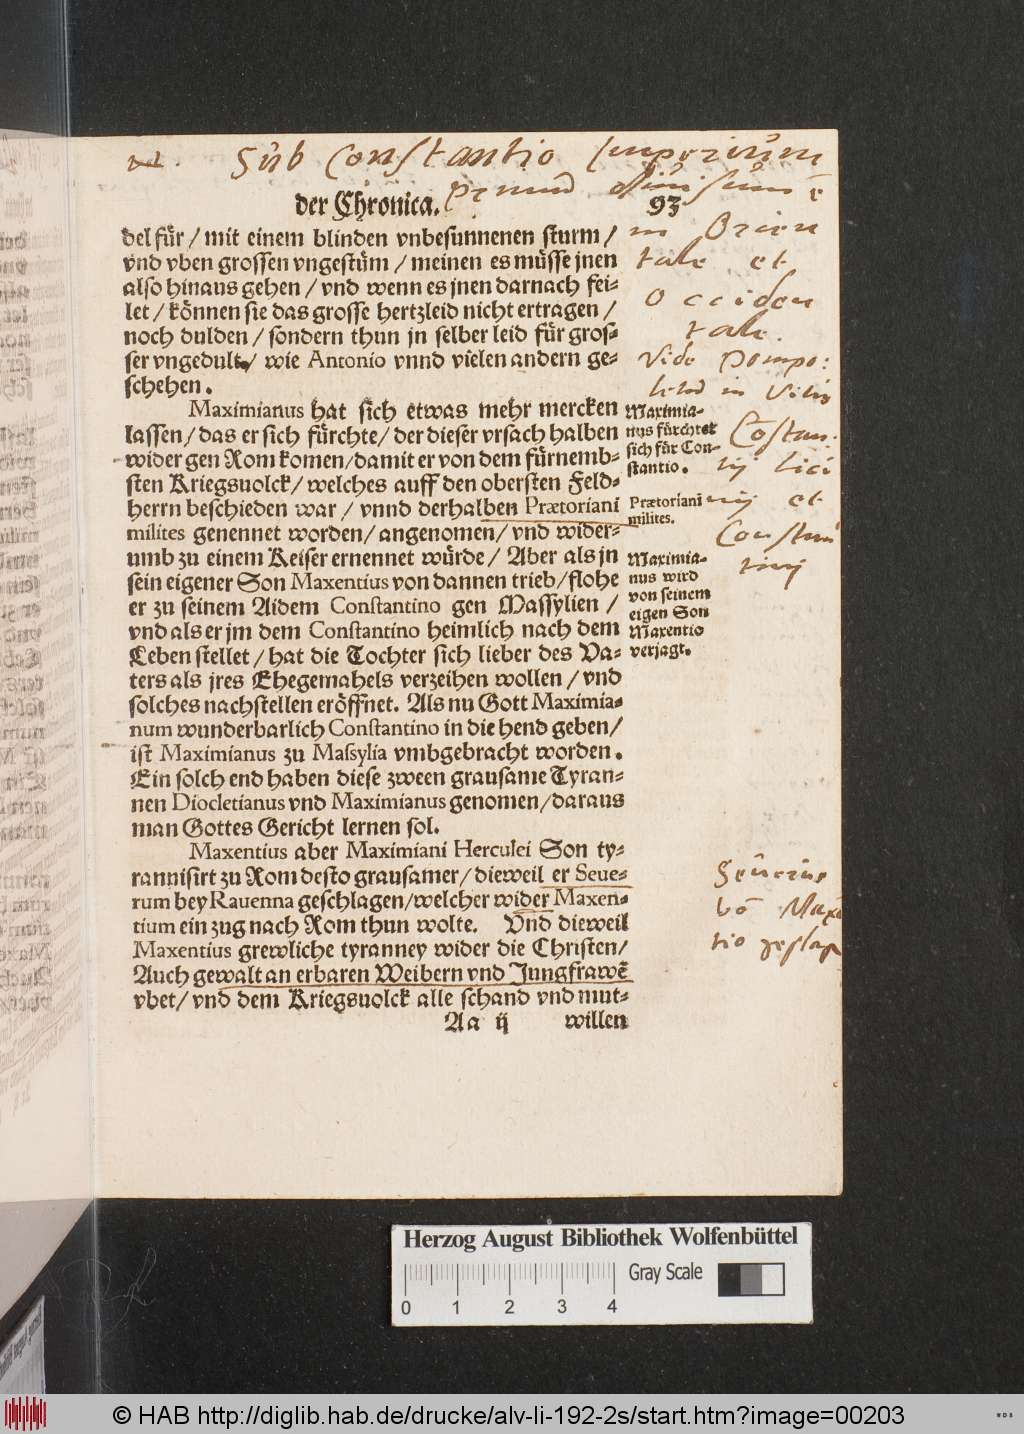 Sub Constantio Imperium
primum diuisum ē
der Chronica.
93
in Orien
tale et
Occiden
tale.
Vide Pompo:
in Vitis
Costan:
tij Lici
nij et
Constan
tinj
del für / mit einem blinden vnbesunnenen sturm /
vnd vben grossen vngestüm / meinen es müsse jnen
also hinaus gehen / vnd wenn es jnen darnach fei-
let / können sie das grosse hertzleid nicht ertragen /
noch dulden / sondern thun jn selber leid für gros-
ser vngedult / wie Antonio vnnd vielen andern ge-
schehen.
Maximianus hat sich etwas mehr mercken
lassen / das er sich fürchte / der dieser vrsach halben
wider gen Rom komen / damit er von dem fürnemb-
sten Kriegsuolck / welches auff den obersten Feld-
herrn beschieden war / vnnd derhalben Prætoriani
milites genennet worden / angenomen / vnd wider-
umb zu einem Keiser ernennet würde / Aber als jn
sein eigener Son Maxentius von dannen trieb / flohe
er zu seinem Aidem Constantino gen Massylien /
vnd als er jm dem Constantino heimlich nach dem
Leben stellet / hat die Tochter sich lieber des Va-
ters als jres Ehegemahels verzeihen wollen / vnd
solches nachstellen eröffnet. Als nu Gott Maximia-
num wunderbarlich Constantino in die hend geben /
ist Maximianus zu Massylia vmbgebracht worden.
Ein solch end haben diese zween grausame Tyran-
nen Diocletianus vnd Maximianus genomen / daraus
man Gottes Gericht lernen sol.
Maxentius aber Maximiani Herculei Son ty-
rannisirt zu Rom desto grausamer / dieweil er Seue-
rum bey Rauenna geschlagen / welcher wider Maxen-
tium ein zug nach Rom thun wolte. Vnd dieweil
Maxentius grewliche tyranney wider die Christen /
Auch gewalt an erbaren Weibern vnd Jungfrawē
vbet / vnd dem Kriegsuolck alle schand vnd mut-
Aa ij willen
Maximia-
nus fürchtet
sich für Con-
stantio.
Prætoriani
milites.
Maximia-
nus wird
von seinem
eigen Son
Maxentio
verjagt.
Seuerus
vō Maxē
tio geslag
Herzog August Bibliothek Wolfenbüttel
Gray Scale
0 1 2 3 4
© HAB http://diglib.hab.de/drucke/alv-li-192-2s/start.htm?image=00203